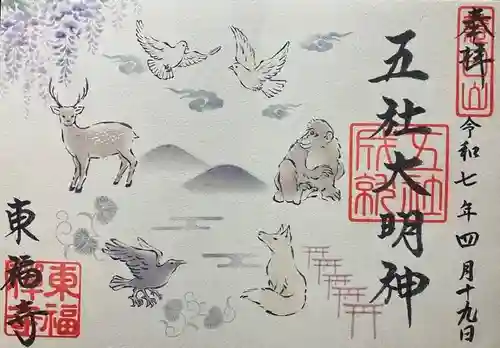 奉拝
五社大明神
令和七年四月十九日
東福寺
五社
成就
東福
禅寺